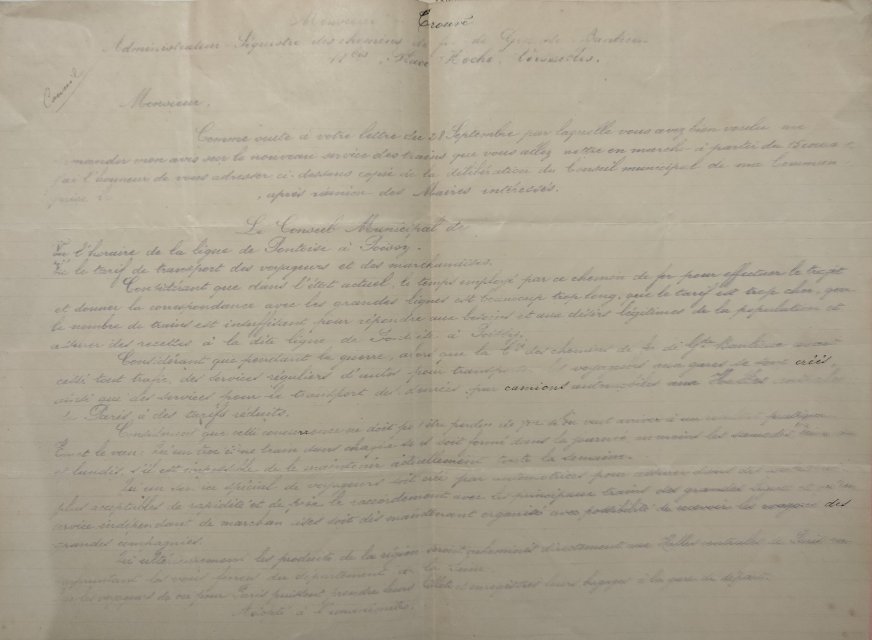 Monsieur Trouvé
Administrateur Séquestre des chemins de fer de Gde Banlieue
11bis, Rue Hoche, Versailles.
Monsieur,
Comme suite à votre lettre du 28 Septembre par laquelle vous avez bien voulu me
demander mon avis sur le nouveau service des trains que vous allez mettre en marche à partir du
j'ai l'honneur de vous adresser ci-dessous copie de la délibération du Conseil municipal de ma Commune
prise après réunion des Maires intéressés.
Le Conseil Municipal de
Vu l'horaire de la ligne de Pontoise à Poissy.
Vu le tarif de transport des voyageurs et des marchandises.
Considérant que dans l'état actuel, le temps employé par ce chemin de fer pour effectuer le trajet
et donner la correspondance avec les grandes lignes est beaucoup trop long, que le tarif est trop cher, que
le nombre de trains est insuffisant pour répondre aux besoins et aux désirs légitimes de la population et
assurer des recettes à la dite ligne de Pontoise à Poissy.
Considérant que pendant la guerre, alors que la Cie des chemins de fer de Gde Banlieue avait
cessé tout trafic, des services réguliers d'autos pour transporter les voyageurs aux gares se sont créés,
ainsi que des services pour le transport des denrées par camions automobiles aux Halles centrales
de Paris, à des tarifs réduits.
Considérant que cette concurrence ne doit pas être perdue de vue si l'on veut arriver à un résultat pratique
Emet le voeu: Qu'un train dans chaque sens soit formé dans la journée au moins les samedis,
et lundis, s'il est impossible de le maintenir actuellement toute la semaine.
Qu'un service spécial de voyageurs soit créé par automotrices pour assurer dans des conditions
plus acceptables de rapidité et de prix le raccordement avec les principaux trains des grandes lignes et qu'un
service indépendant de marchandises soit dès maintenant organisé avec possibilité de recevoir les wagons des
grandes compagnies.
Qu'ultérieurement les produits de la région soient acheminés directement aux Halles centrales de Paris en
empruntant les voies ferrées du département de la Seine.
Que les voyageurs de ou pour Paris puissent prendre leurs billets et enregistrer leurs bagages à la gare de départ.
Adopté à l'unanimité.